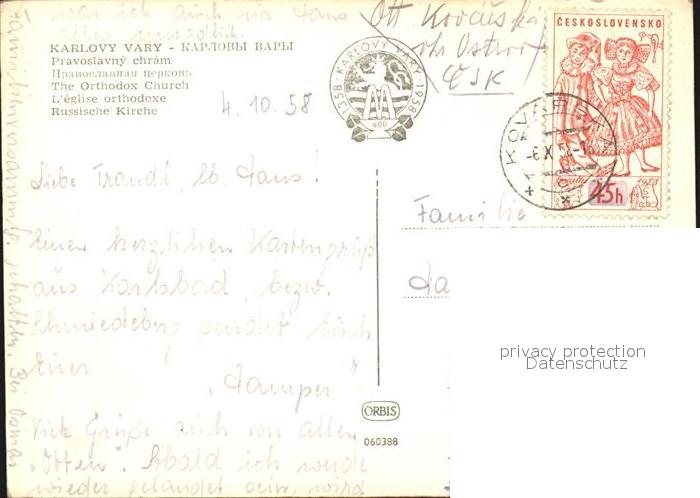 was ich auch in
alles
KARLOVY VARY - КАРЛОВЫ ВАРЫ
Pravoslavný chrám
Православная церковь
The Orthodox Church
L'église orthodoxe
Russische Kirche
4.10.58
1358 · KARLOVY VARY · 1958
600
Ott Kovářská
Ostrov
ČSR
ČESKOSLOVENSKO
45h
KOVÁŘSKÁ
-6.X.58-
Liebe Traudl, lb. Hans!
Einen herzlichen Kartengruß
aus Karlsbad, bezw.
Schmiedeberg sendet Euch
Euer
"Hamper"
Viele Grüße auch von allen
"Otten". Sobald ich werde
wieder gelandet sein, wird
Familie
ORBIS
060388
privacy protection
Datenschutz